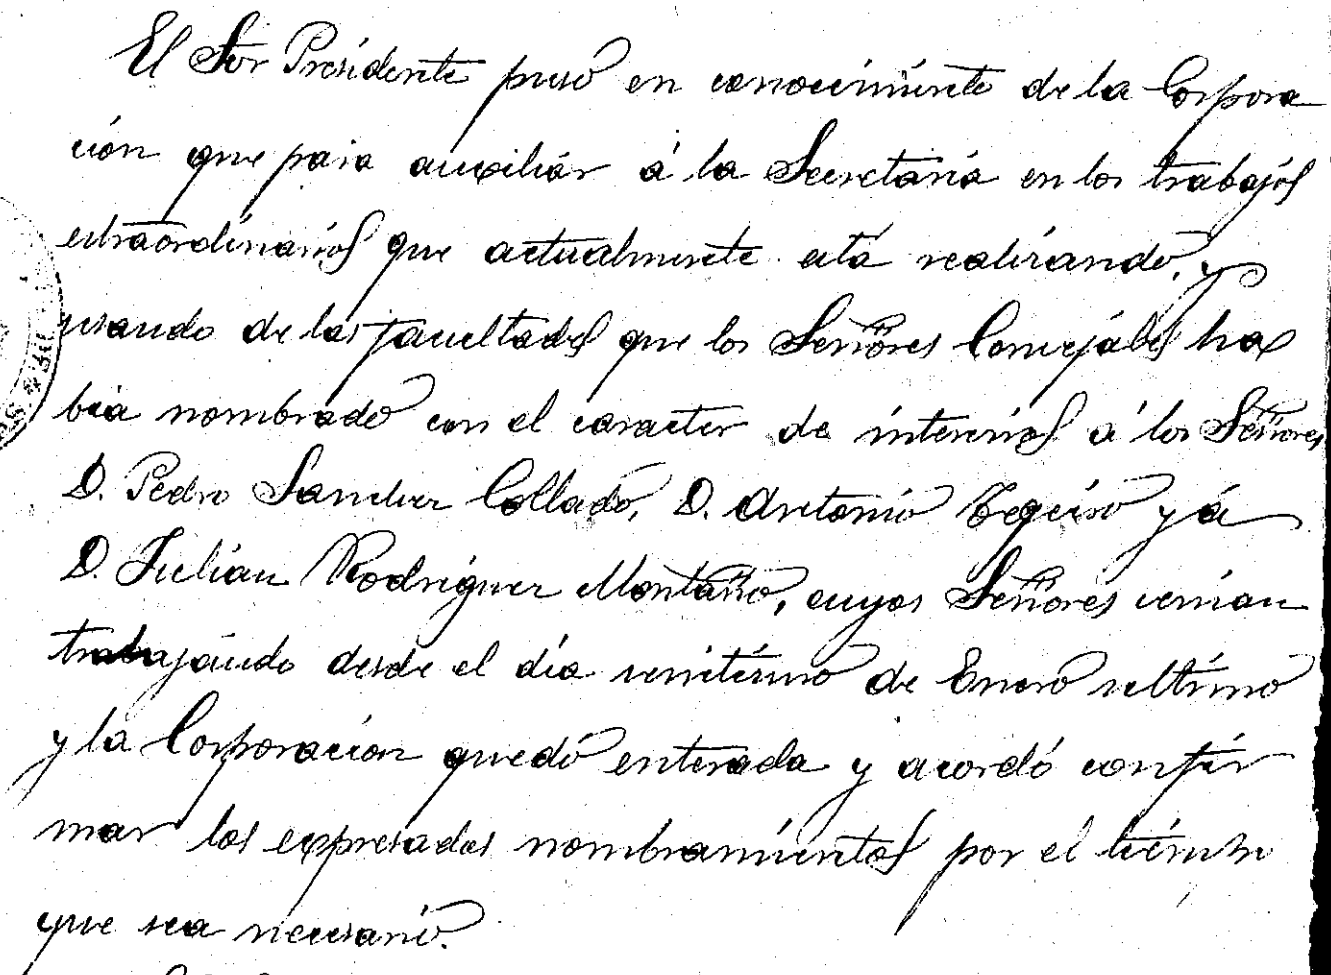 El Sor Presidente puso en conocimiento de la Corpora
ción que para auxiliar á la Secretaria en los trabajos
extraordinarios que actualmente está realizando, y
usando de las facultades que los Señores Concejales ha
bia nombrado con el caracter de interinos á los Señores
D. Pedro Sanchez Collado, D. Antonio y á
D. Julian Rodriguez Montaño, cuyos Señores venian
trabajando desde el dia veintiuno de Enero ultimo
y la Corporacion quedó enterada y acordó confir
mar los expresados nombramientos por el tiempo
que sea necesario.